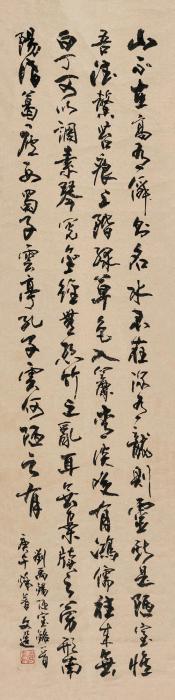 山不在高有僊則名水不在深有龍則靈斯是陋室惟
吾德馨苔痕上階綠草色入簾青談笑有鴻儒往來無
白丁可以調素琴閱金經無絲竹之亂耳無案牘之勞形南
陽諸葛廬西蜀子雲亭孔子雲何陋之有
劉禹錫陋室銘一首
庚午